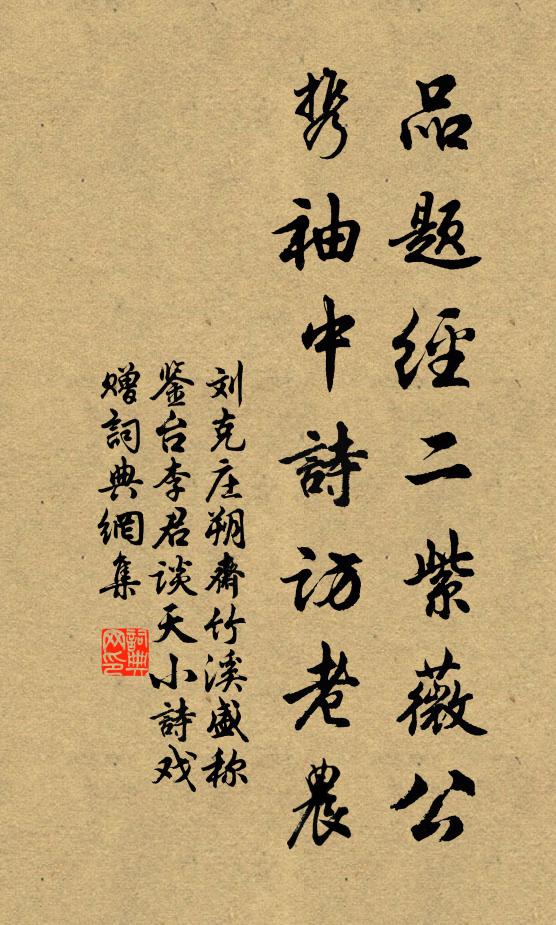 品题經二紫薇公
携袖中詩访老農
刘克庄朔斋竹溪盛称
鉴台李君谈天小詩戏
赠詞典網集
詞典
网印